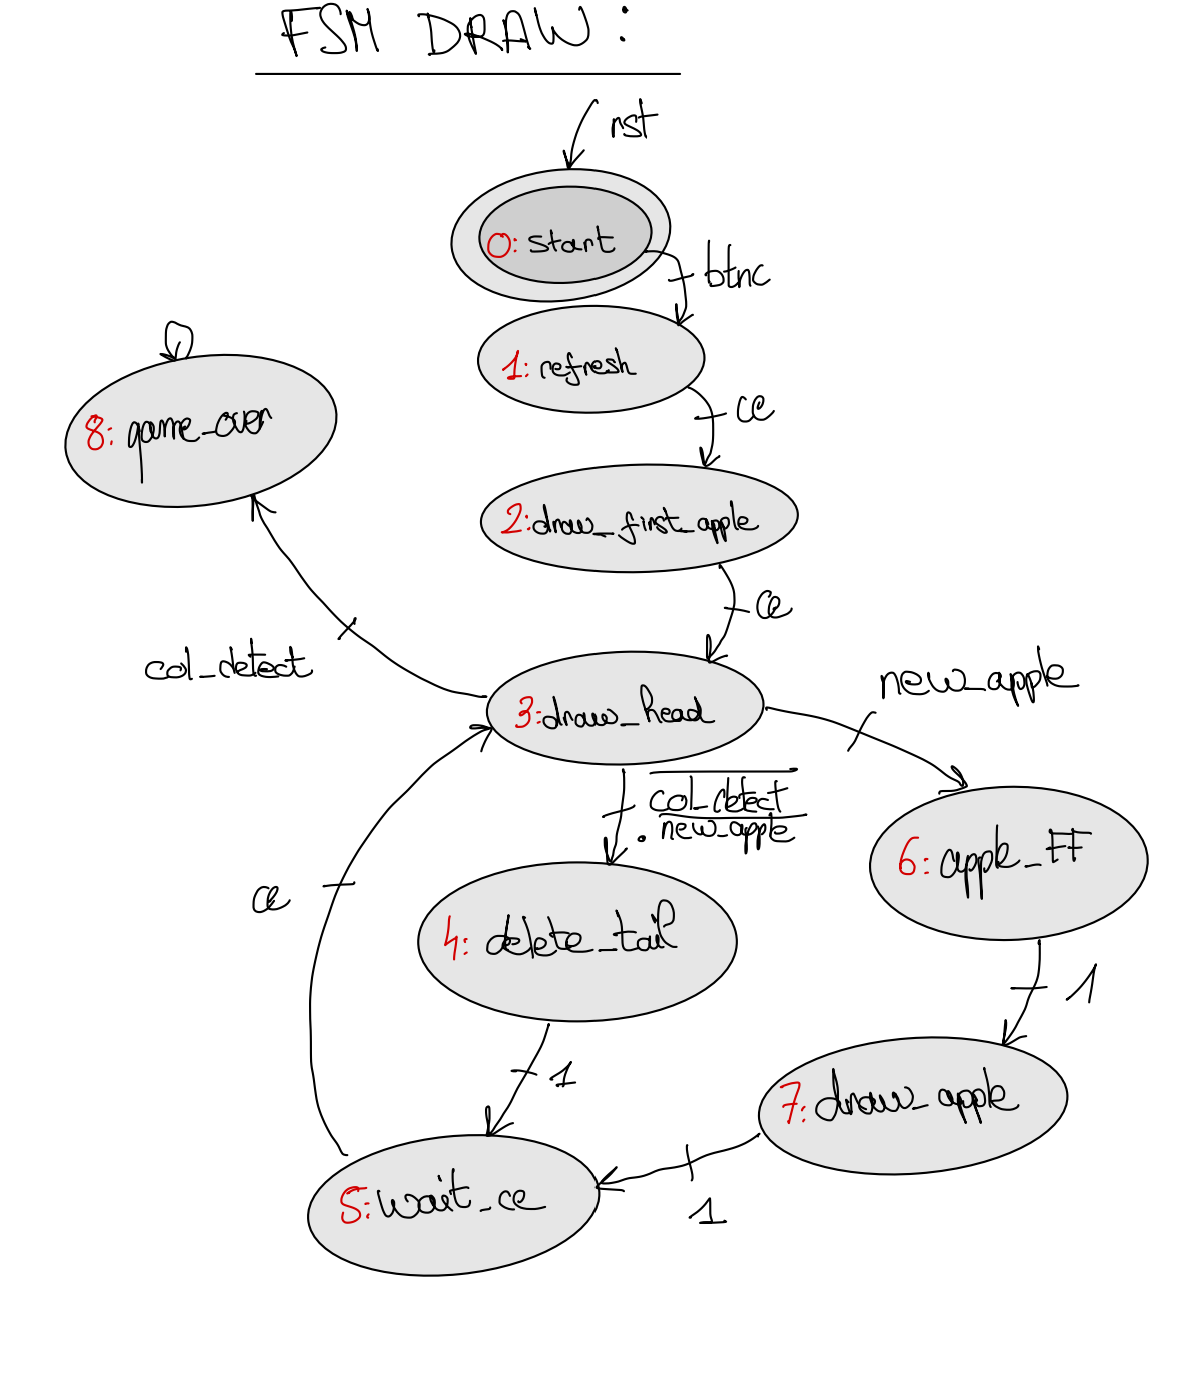 FSM DRAW:
rst
0: start
btnc
1: refresh
ce
8: game_over
2: draw_first_apple
ce
col_detect
new_apple
3: draw_head
col_detect
. new_apple
6: apple_FF
ce
4: delete_tail
1
1
7: draw_apple
5: wait_ce
1